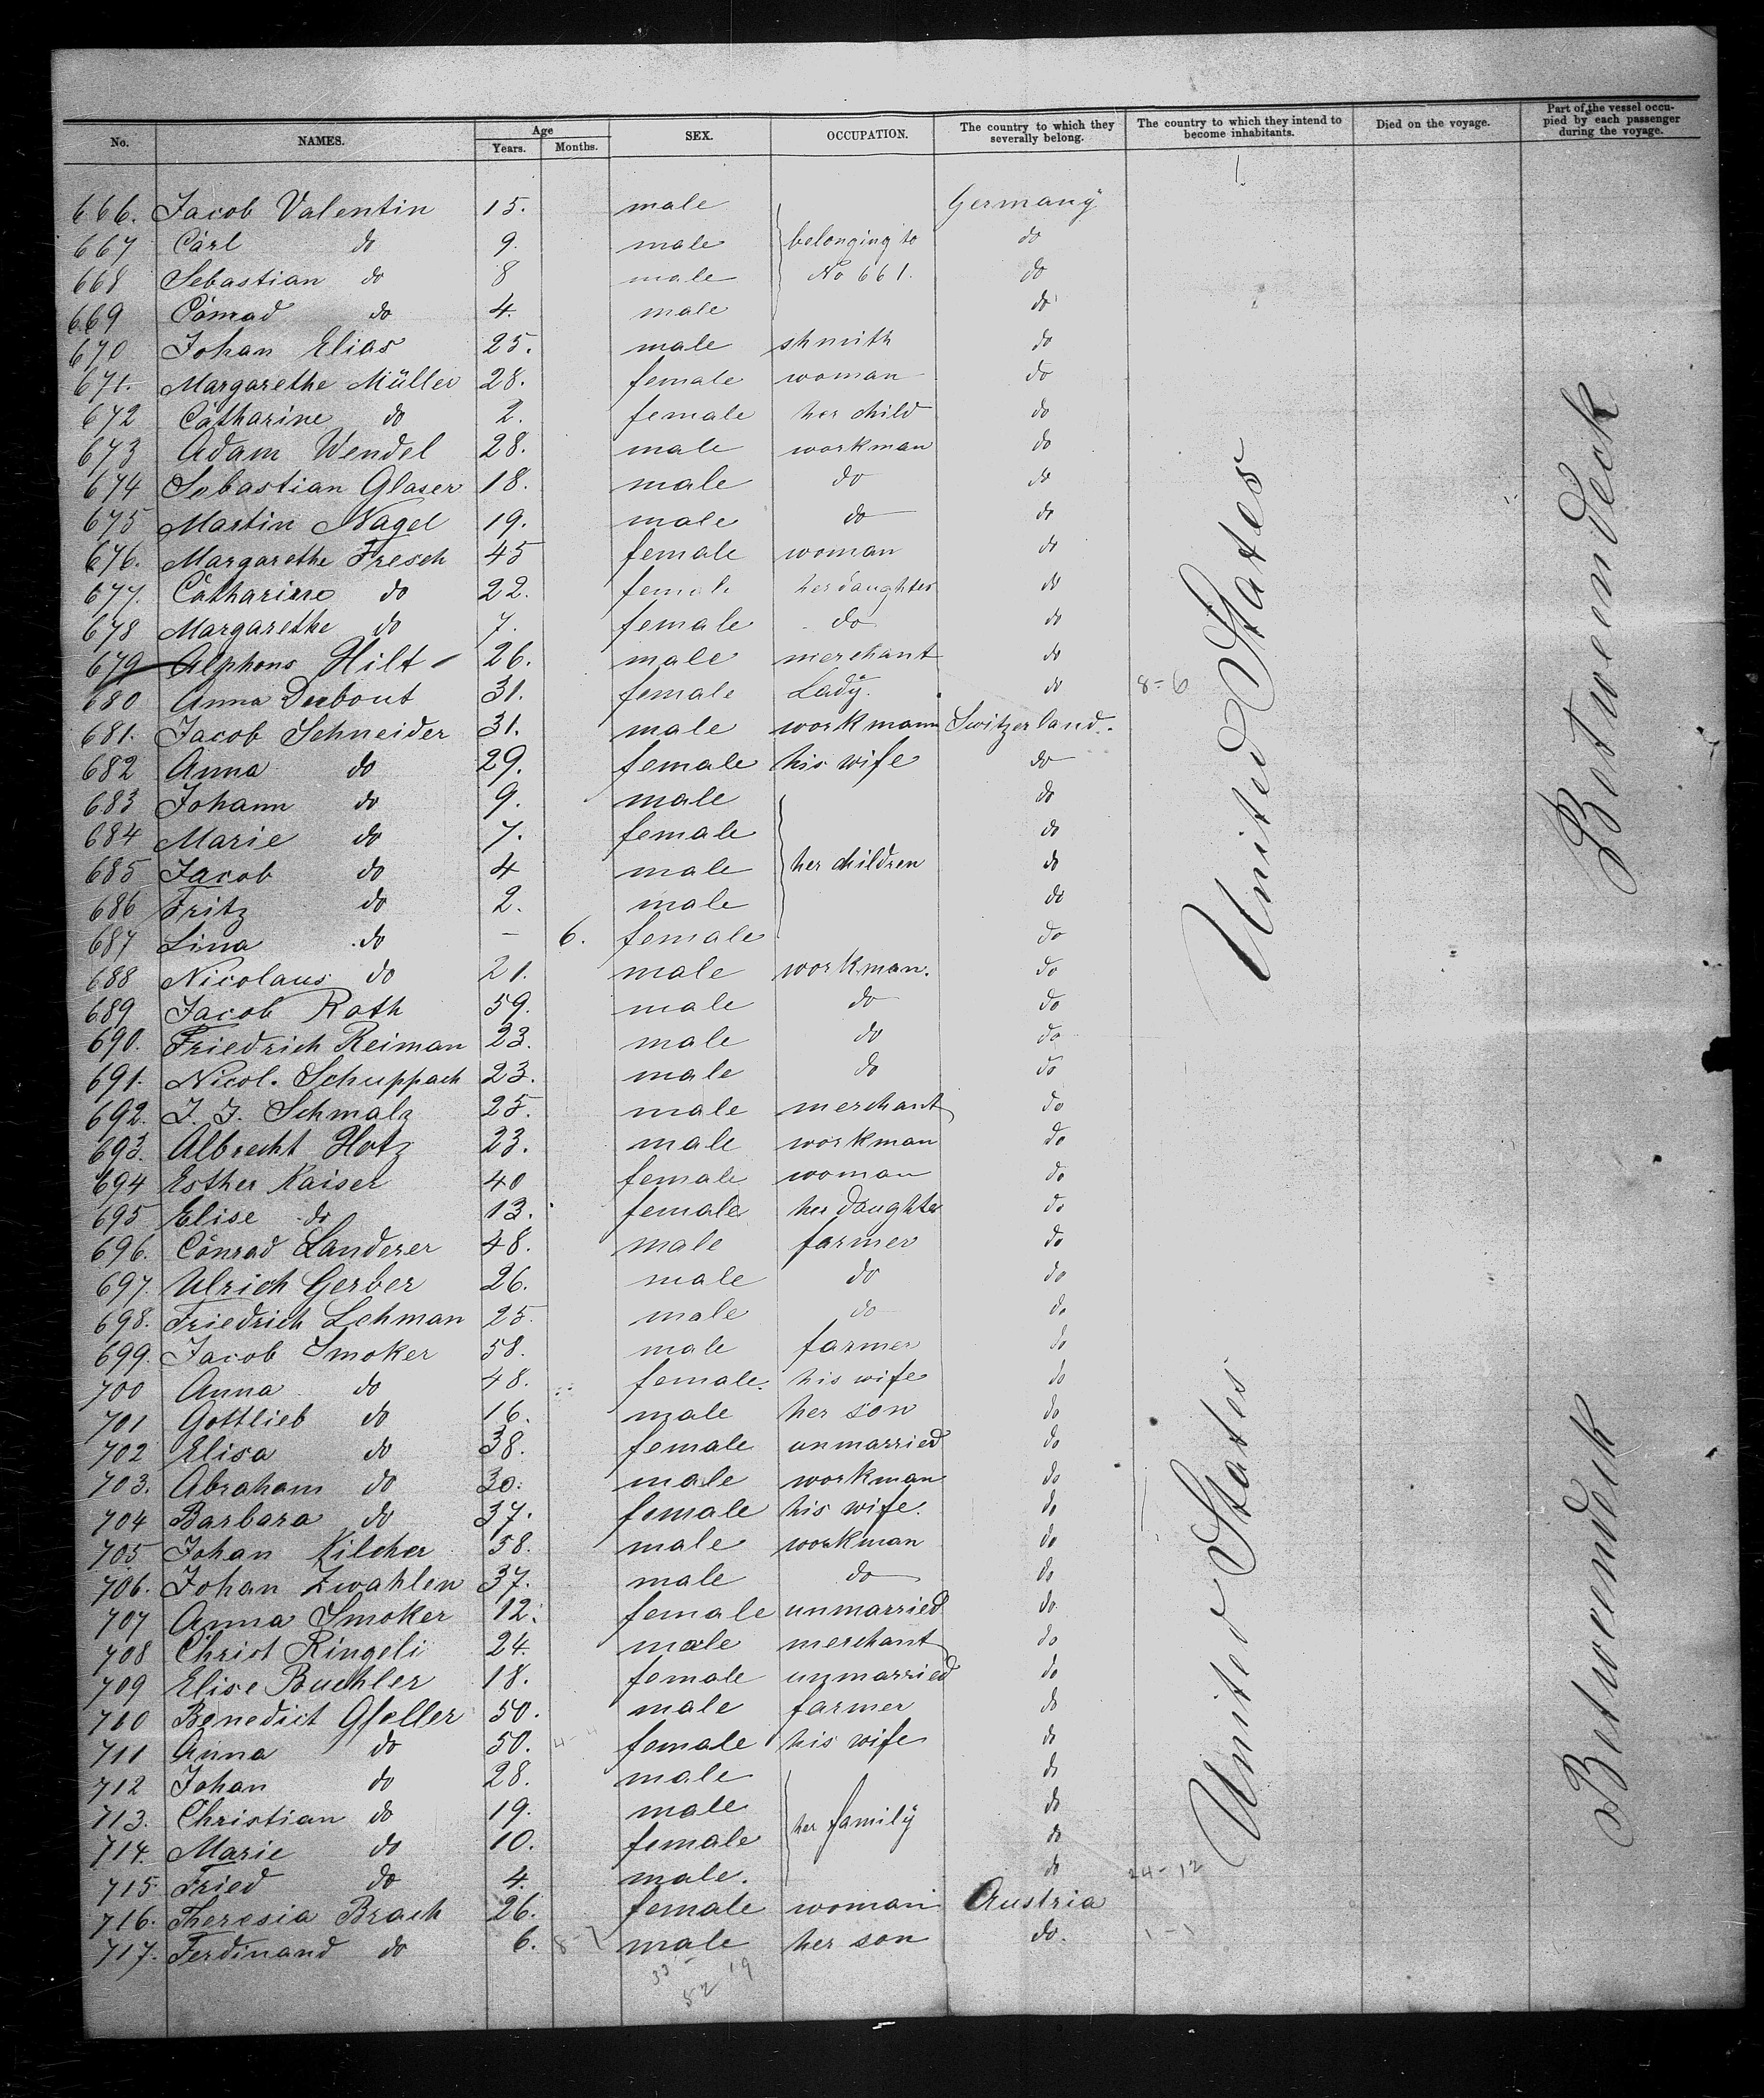 No. NAMES. Age Years. Months. SEX. OCCUPATION. The country to which they severally belong. The country to which they intend to become inhabitants. Died on the voyage. Part of the vessel occupied by each passenger during the voyage.
666. Jacob Valentin 15. male Germany
667 Carl do 9. male belonging to do
668 Sebastian do 8 male No 661. do
669 Conrad do 4. male do
670 Johan Elias 25. male shmith do
671. Margarethe Müller 28. female woman do
672 Catharine do 2. female her child do
673 Adam Wendel 28. male workman do
674 Sebastian Glaser 18. male do do
675 Martin Nagel 19. male do do
676. Margarethe Fresch 45 female woman do
677. Catharine do 22. female her daughter do
678 Margarethe do 7. female do do
679 Alphons Hilt 26. male merchant do
680 Anna Deebout 31. female Lady. do 8-6
681. Jacob Schneider 31. male workmann Switzerland.
682 Anna do 29. female his wife do
683 Johann do 9. male do
684 Marie do 7. female do
685 Jacob do 4 male her children do
686 Fritz do 2. male do
687 Lina do - 6. female do
688 Nicolaus do 21. male workman. do
689 Jacob Roth 59. male do do
690. Friedrich Reiman 23. male do do
691. Nicol. Schuppach 23. male do do
692. J. J. Schmalz 25. male merchant do
693. Albrecht Hotz 23. male workman do
694 Esther Kaiser 40 female woman do
695 Elise do 13. female her daughter do
696. Conrad Landerer 48. male farmer do
697. Ulrich Gerber 26. male do do
698. Friedrich Lehman 25. male do do
699. Jacob Smoker 58. male farmer do
700 Anna do 48. female. his wife do
701 Gottlieb do 16. male her son do
702 Elisa do 38. female unmarried do
703. Abraham do 30. male workman do
704 Barbara do 37. female his wife. do
705 Johan Kilcher 58. male workman do
706. Johan Zwahlen 37. male do do
707 Anna Smoker 12. female unmarried do
708 Christ Ringeli 24. male merchant do
709 Elise Buehler 18. female unmarried do
710 Benedict Gfeller 50. male farmer do
711 Anna do 50. female his wife do
712 Johan do 28. male do
713. Christian do 19. male her family do
714. Marie do 10. female do
715. Fried do 4. male. do 24-12
716. Theresia Brach 26. female woman Austria
717. Ferdinand do 6. male her son do. 1-1
33 19
52
United States
United States
Betweendeck
Betweendeck